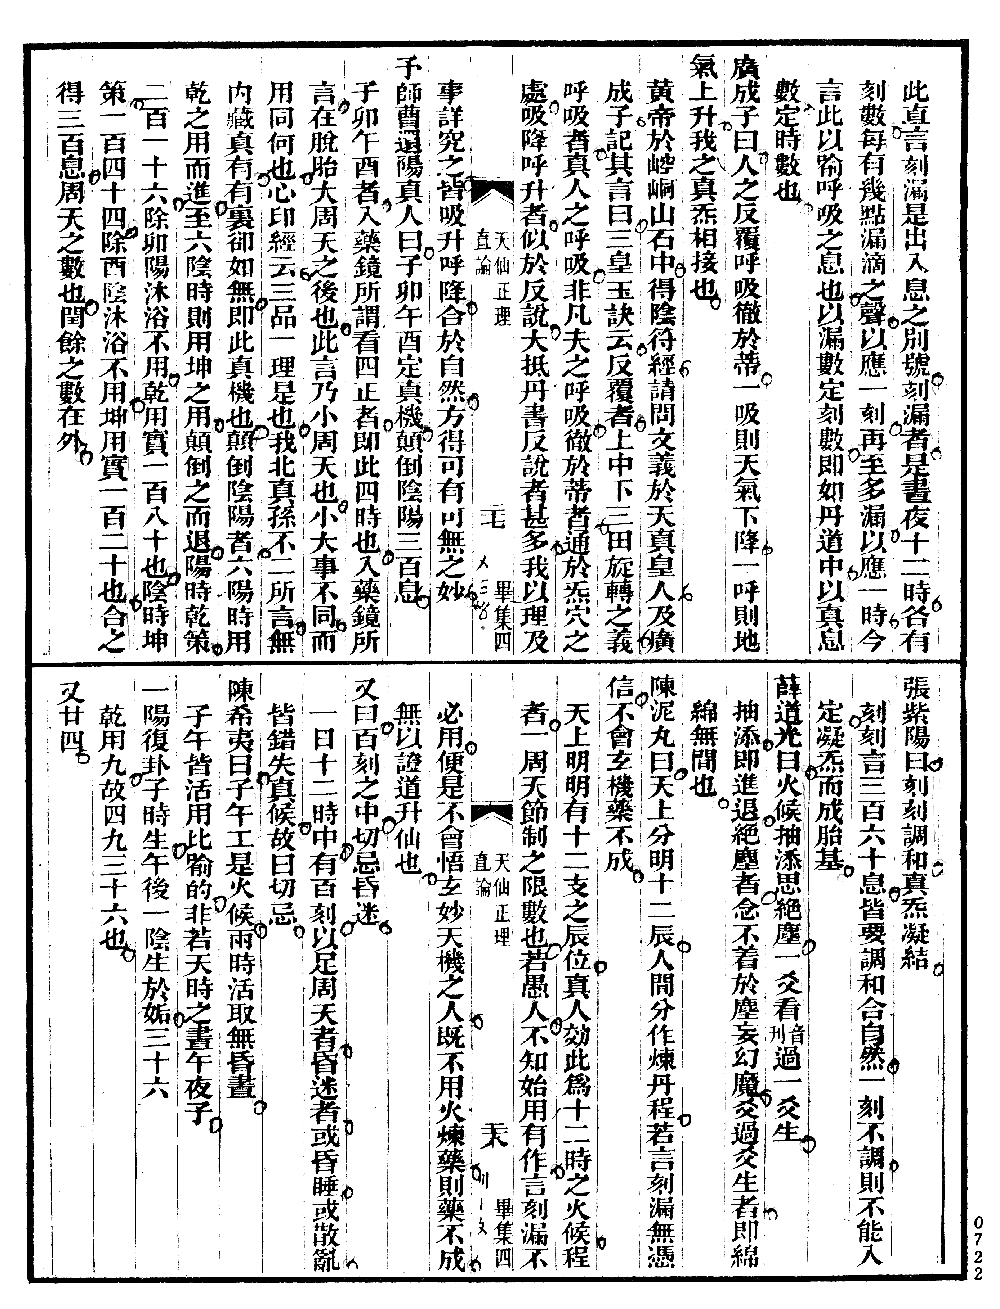 此直言刻漏是出入息之別號刻漏者是晝夜十二時各有
刻數每有幾點漏滴之聲以應一刻再至多漏以應一時今
言此以喻呼吸之息也以漏數定刻數即如丹道中以真息
數定時數也
廣成子曰人之反覆呼吸徹於蒂一吸則天氣下降一呼則地
氣上升我之真炁相接也
黃帝於崆峒山石中得陰符經請問文義於天真皇人及廣
成子記其言曰三皇玉訣云反覆者上中下三田旋轉之義
呼吸者真人之呼吸非凡夫之呼吸徹於蒂者通於炁穴之
處吸降呼升者似於反說大抵丹書反說者甚多我以理及
天仙正理
直論
畢集四
事詳究之皆吸升呼降合於自然方得可有可無之妙
予師曹還陽真人曰子卯午酉定真機顛倒陰陽三百息
子卯午酉者入藥鏡所謂看四正者即此四時也入藥鏡所
言在脫胎大周天之後也此言乃小周天也小大事不同而
用同何也心印經云三品一理是也我北真孫不二所言無
內藏真有有裏卻如無即此真機也顛倒陰陽者六陽時用
乾之用而進至六陰時則用坤之用顛倒之而退陽時乾策
二百一十六除卯陽沐浴不用乾用實一百八十也陰時坤
策一百四十四除酉陰沐浴不用坤用實一百二十也合之
得三百息周天之數也閏餘之數在外
張紫陽曰刻刻調和真炁凝結
刻刻言三百六十息皆要調和合自然一刻不調則不能入
定凝炁而成胎基
薛道光曰火候抽添思絕塵一爻看音刊過一爻生
抽添即進退絕塵者念不着於塵妄幻魔爻過爻生者即綿
綿無間也
陳泥丸曰天上分明十二辰人間分作煉丹程若言刻漏無憑
信不會玄機藥不成
天上明明有十二支之辰位真人效此為十二時之火候程
者一周天節制之限數也若愚人不知始用有作言刻漏不
天仙正理
直論
畢集四
必用便是不會悟玄妙天機之人既不用火煉藥則藥不成
無以證道升仙也
又曰百刻之中切忌昏迷
一日十二時中有百刻以足周天者昏迷者或昏睡或散亂
皆錯失真候故曰切忌
陳希夷曰子午工是火候兩時活取無昏晝
子午皆活用比喻的非若天時之晝午夜子
一陽復卦子時生午後一陰生於姤三十六
乾用九故四九三十六也
又廿四
0722